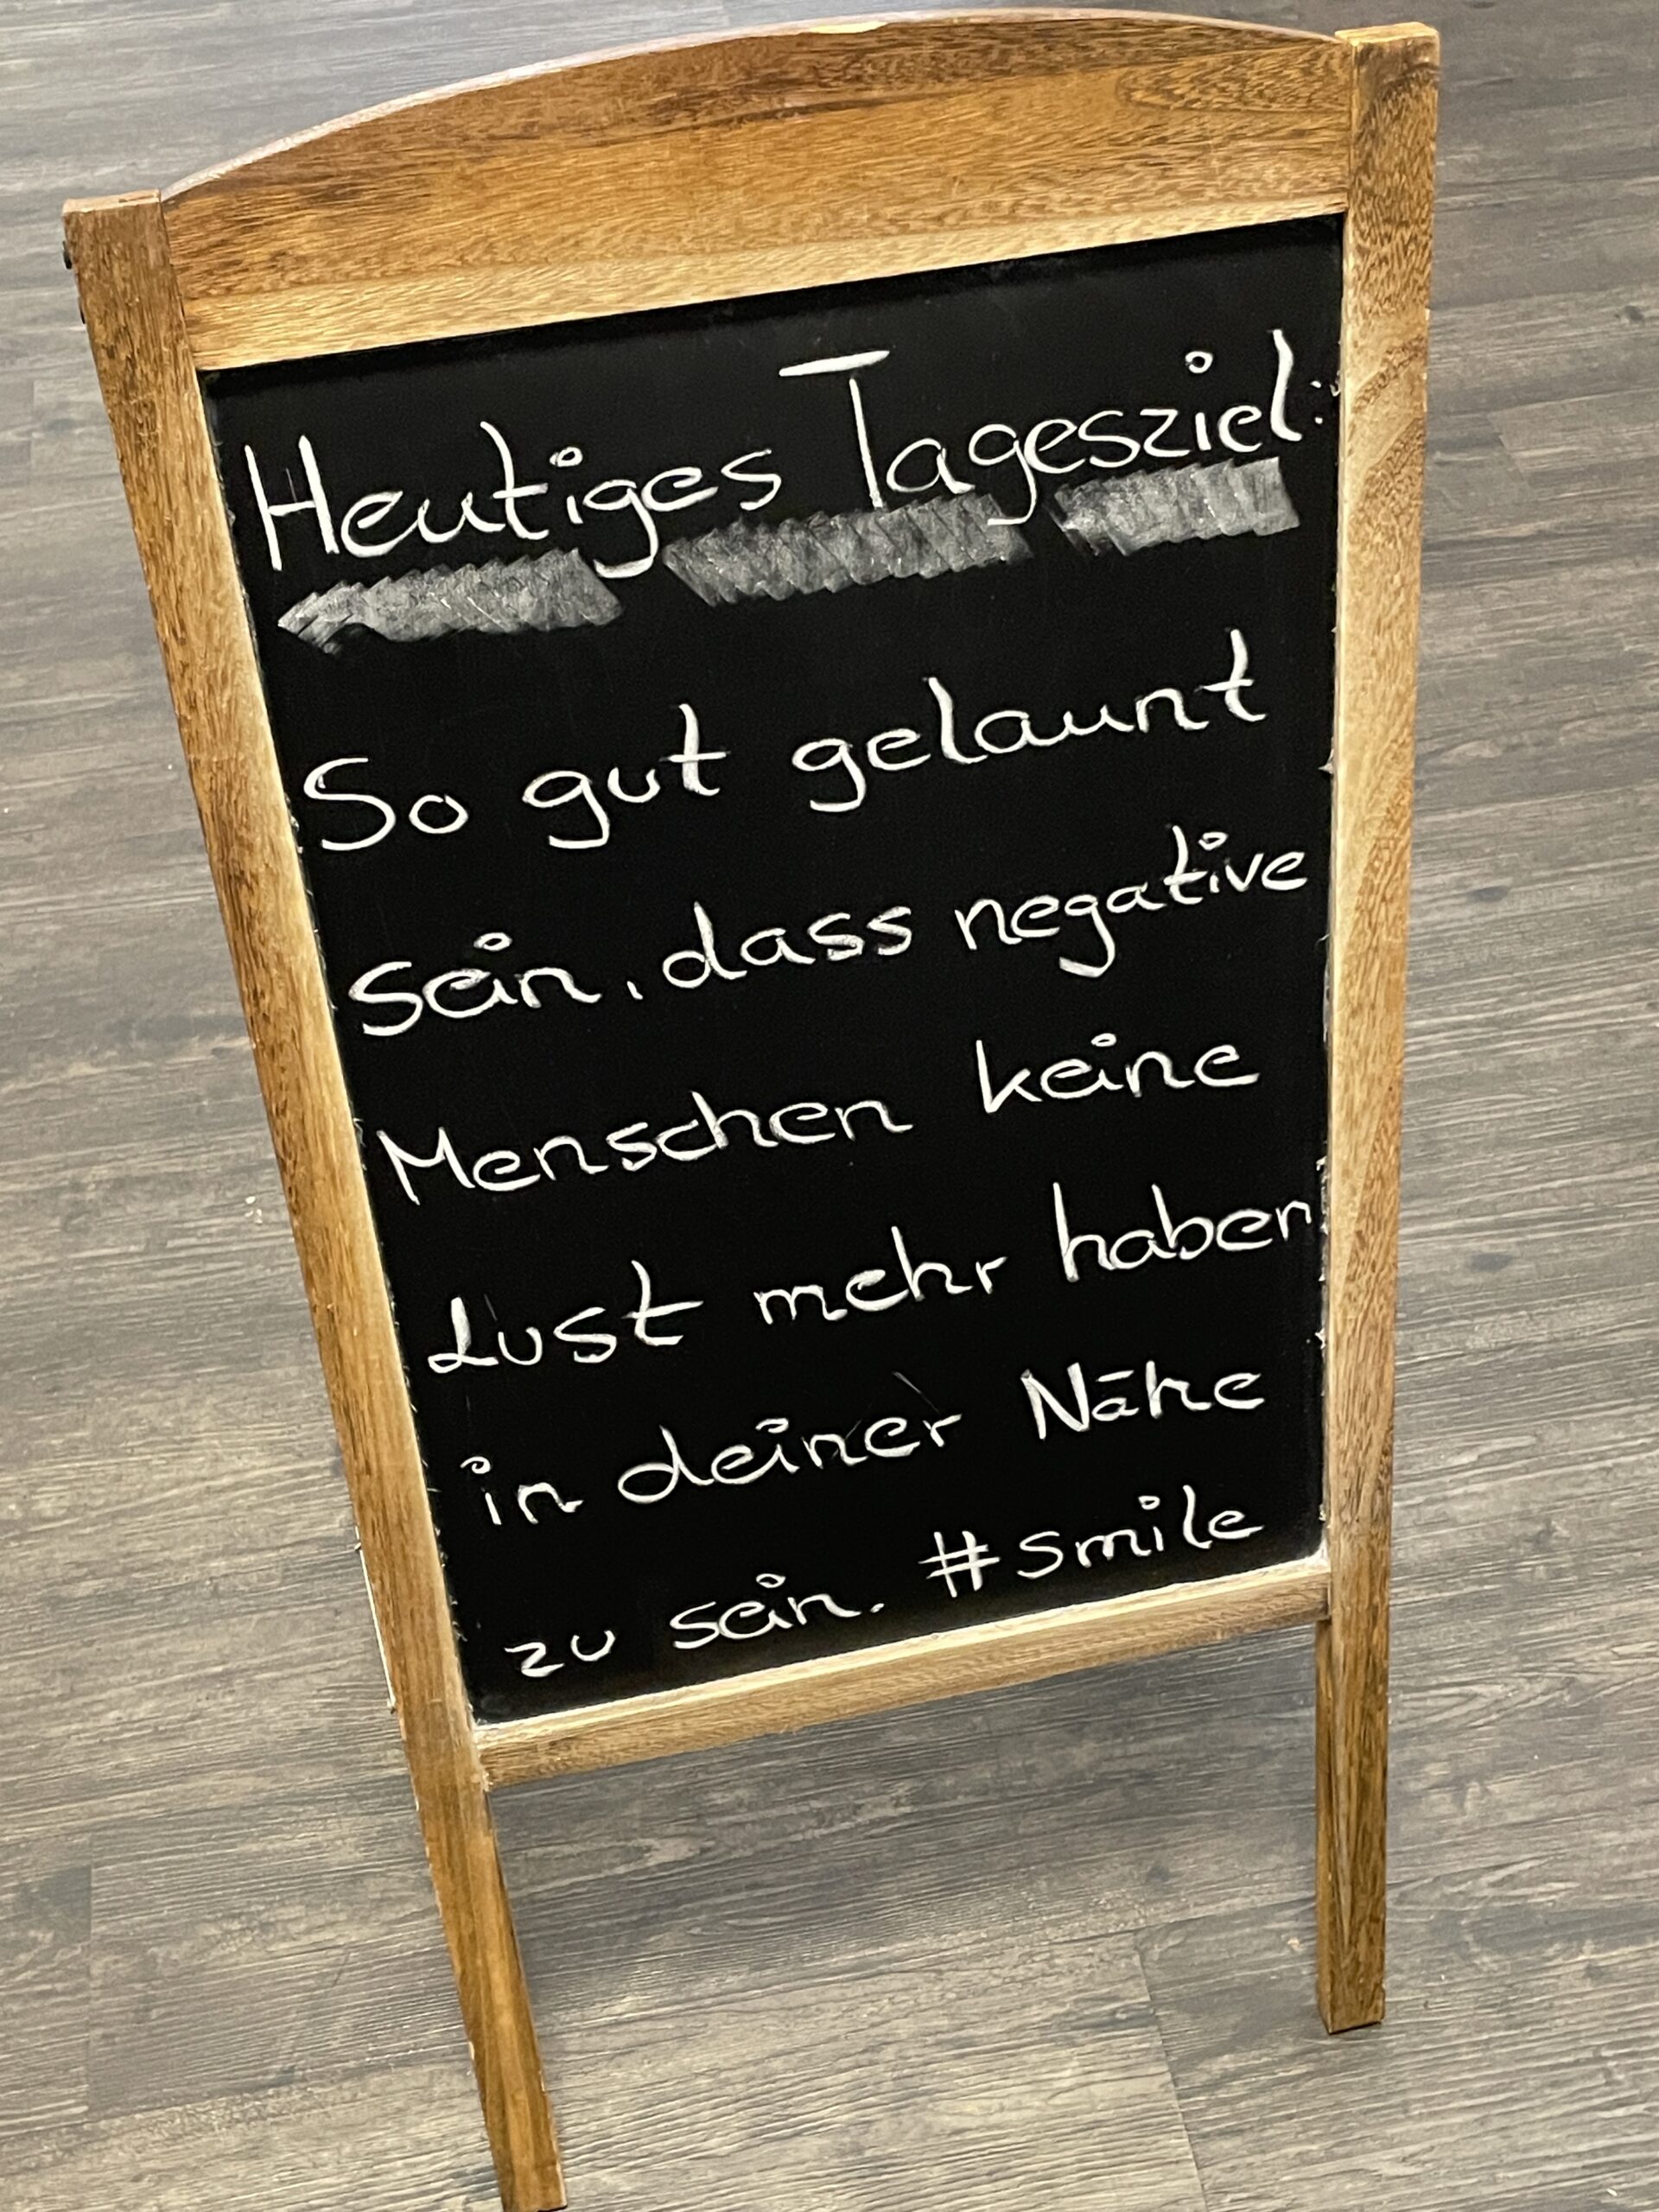 Heutiges Tagesziel:
So gut gelaunt
sein, dass negative
Menschen keine
Lust mehr haben,
in deiner Nähe
zu sein. #smile